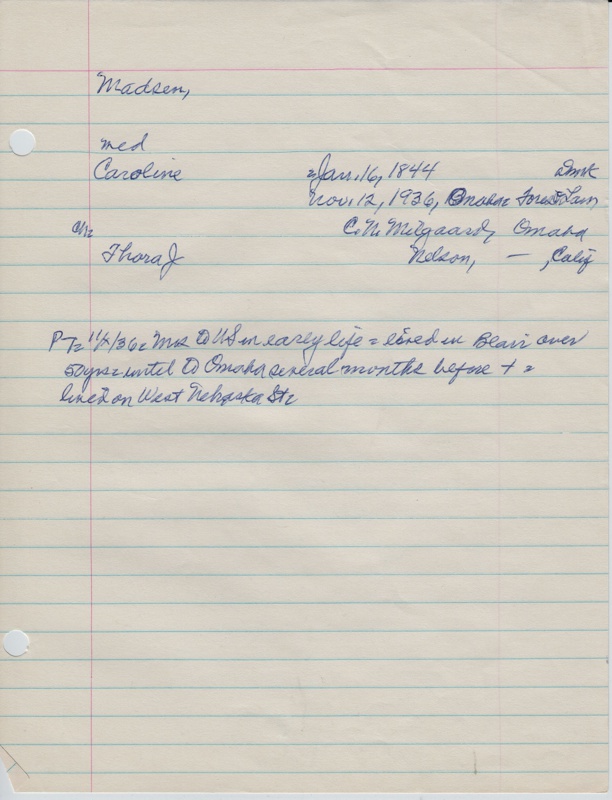 Madsen,
med
Caroline =Jan. 16, 1844 Dmk
Nov. 12, 1936, Omaha= Forest Lawn
ch= C. N. Milgaard, Omaha
Thora J Nelson, —, Calif
PT= 11/ /36= Mrs to US in early life = lived in Blair over
50 yrs= until to Omaha several months before + =
lived on West Nebraska St=